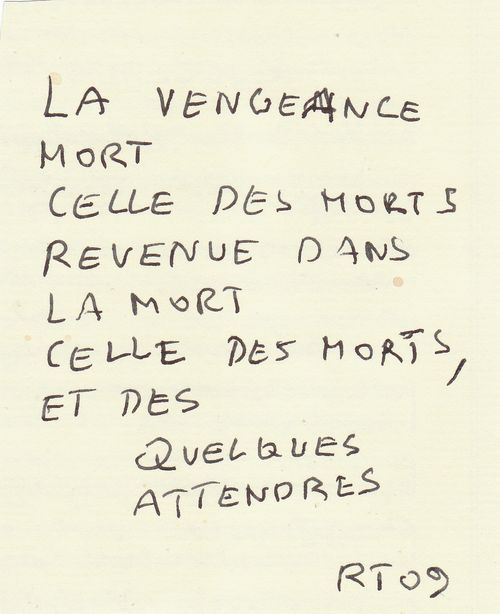 LA VENGEANCE
MORT
CELLE DES MORTS
REVENUE DANS
LA MORT
CELLE DES MORTS,
ET DES
QUELQUES
ATTENDRES
RT09